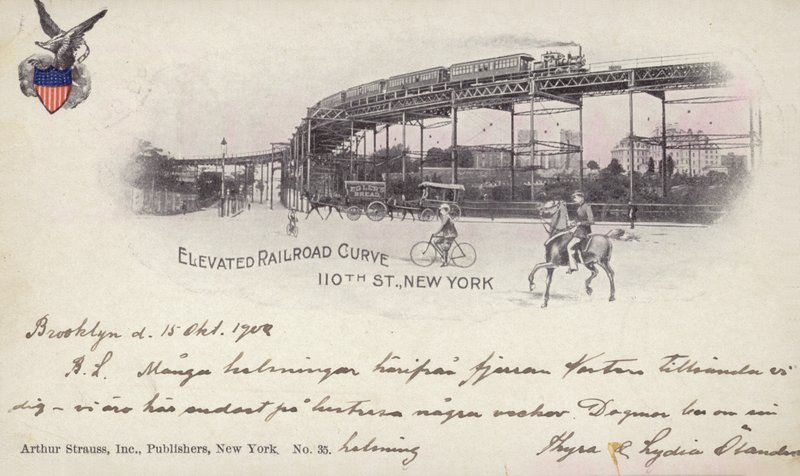 EDLER'S
BREAD
ELEVATED RAILROAD CURVE
110TH ST., NEW YORK
Brooklyn d. 15 Okt. 1902
B. L. Många helsningar härifrån fjerran Vestern tillsända vi
dig - vi äro här endast på lustresa några veckor. Dagmar ber om sin
helsning Thyra & Lydia
Arthur Strauss, Inc., Publishers, New York. No. 35.